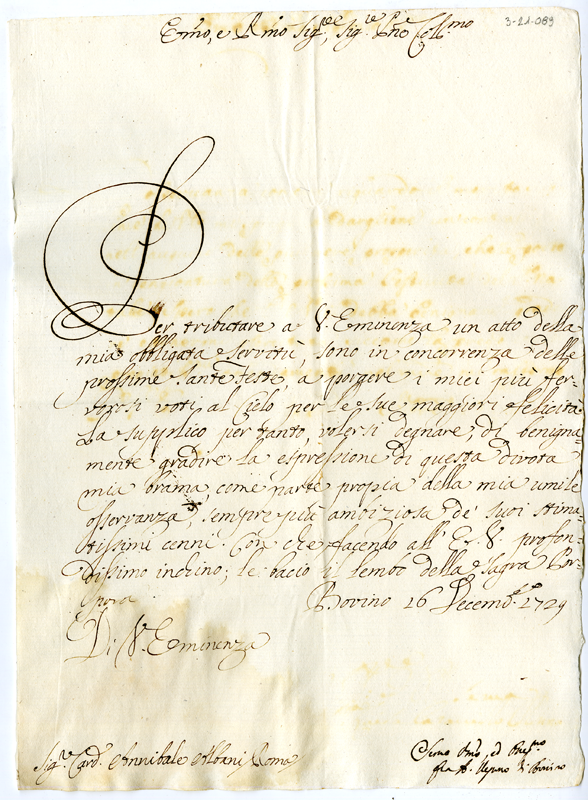 3-21-089
Emo, e Rmo Sigre, Sigre Pne Collmo
Per tributare a V. Eminenza un atto della
mia obbligata servitù, sono in concorrenza delle
prossime Sante Feste, a porgere i miei più fer-
vorosi voti al Cielo per le sue maggiori felicità.
La supplico per tanto, volersi degnare, di benigna-
mente gradire la espressione di questa divota
mia brama, come parte propria della mia umile
osservanza, sempre più ambiziosa de' suoi stima-
tissimi cenni. Con che facendo all' E. V. profon-
dissimo inchino, le bacio il lembo della Sagra Por-
pora.
Bovino 16 Decembre 1729
Di V. Eminenza
Sigr Card. Annibale Albani Roma
Servo
fra A. Vescovo di Bovino